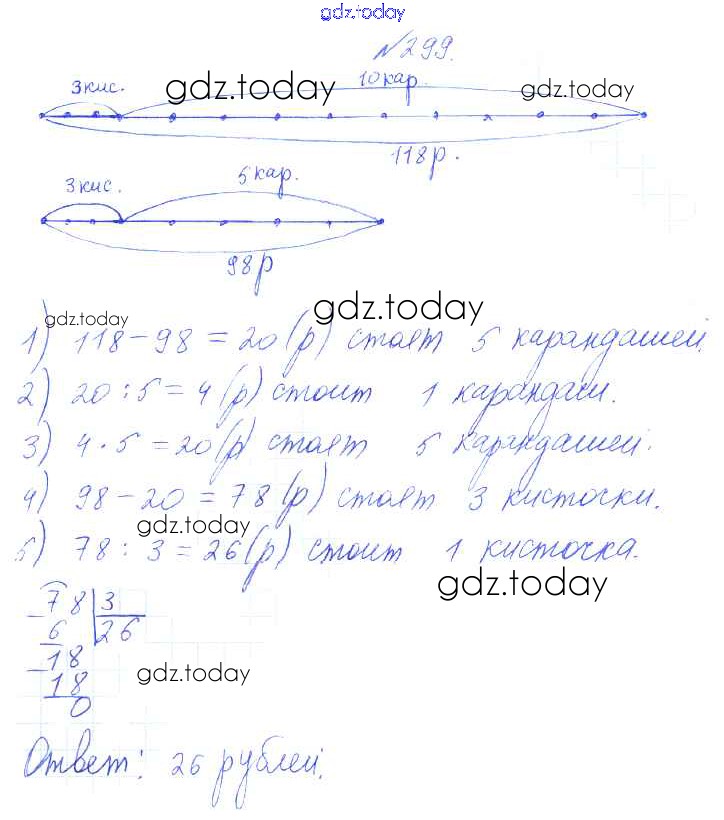 gdz.today
№299.
3кис. gdz.today 10кар. gdz.today
118р.
3кис. 5кар.
98р
gdz.today gdz.today
1) 118-98=20(р) стоят 5 карандашей.
2) 20:5=4(р) стоит 1 карандаш.
3) 4·5=20(р) стоят 5 карандашей.
4) 98-20=78(р) стоят 3 кисточки.
gdz.today
5) 78:3=26(р) стоит 1 кисточка.
gdz.today
-78 3
6 26
-18
gdz.today
18
0
Ответ: 26 рублей.